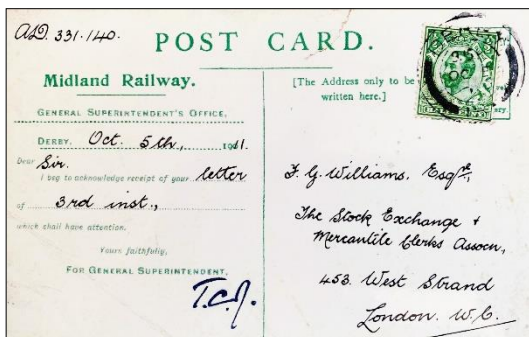 A/D. 331.140.
POST CARD.
Midland Railway.
GENERAL SUPERINTENDENT'S OFFICE,
DERBY. Oct. 5th, 1911.
Dear Sir.
I beg to acknowledge receipt of your letter
of 3rd inst.,
which shall have attention.
Yours faithfully,
FOR GENERAL SUPERINTENDENT,
T.C.J.
[The Address only to be
written here.]
F. G. Williams. Esqre,
The Stock Exchange &
Mercantile Clerks Assocn,
453. West Strand
London. W.C.